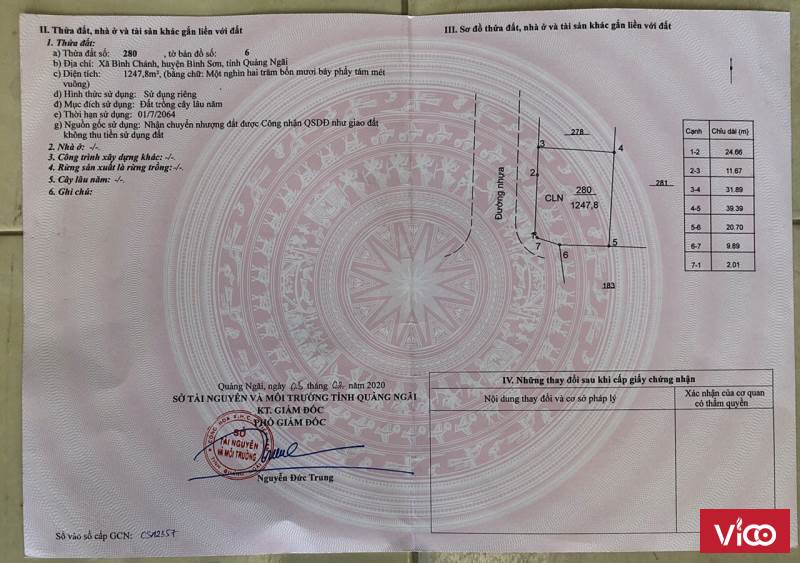 II. Thửa đất, nhà ở và tài sản khác gắn liền với đất
1. Thửa đất:
a) Thửa đất số: 280 , tờ bản đồ số: 6
b) Địa chỉ: Xã Bình Chánh, huyện Bình Sơn, tỉnh Quảng Ngãi
c) Diện tích: 1247,8m², (bằng chữ: Một nghìn hai trăm bốn mươi bảy phẩy tám mét
vuông)
d) Hình thức sử dụng: Sử dụng riêng
đ) Mục đích sử dụng: Đất trồng cây lâu năm
e) Thời hạn sử dụng: 01/7/2064
g) Nguồn gốc sử dụng: Nhận chuyển nhượng đất được Công nhận QSDĐ như giao đất
không thu tiền sử dụng đất
2. Nhà ở: -/-.
3. Công trình xây dựng khác: -/-.
4. Rừng sản xuất là rừng trồng:-/-.
5. Cây lâu năm: -/-.
6. Ghi chú:
Quảng Ngãi, ngày 03 tháng 02 năm 2020
SỞ TÀI NGUYÊN VÀ MÔI TRƯỜNG TỈNH QUẢNG NGÃI
KT. GIÁM ĐỐC
PHÓ GIÁM ĐỐC
SỞ
TÀI NGUYÊN
VÀ MÔI TRƯỜNG
Nguyễn Đức Trung
Số vào sổ cấp GCN:
III. Sơ đồ thửa đất, nhà ở và tài sản khác gắn liền với đất
278
3
4
2
280
CLN
1247,8
281
Đường nhựa
1
7
6
5
183
Cạnh Chiều dài (m)
1-2 24.66
2-3 11.67
3-4 31.89
4-5 39.39
5-6 20.70
6-7 9.89
7-1 2.01
IV. Những thay đổi sau khi cấp giấy chứng nhận
Nội dung thay đổi và cơ sở pháp lý
Xác nhận của cơ quan
có thẩm quyền
ViCO